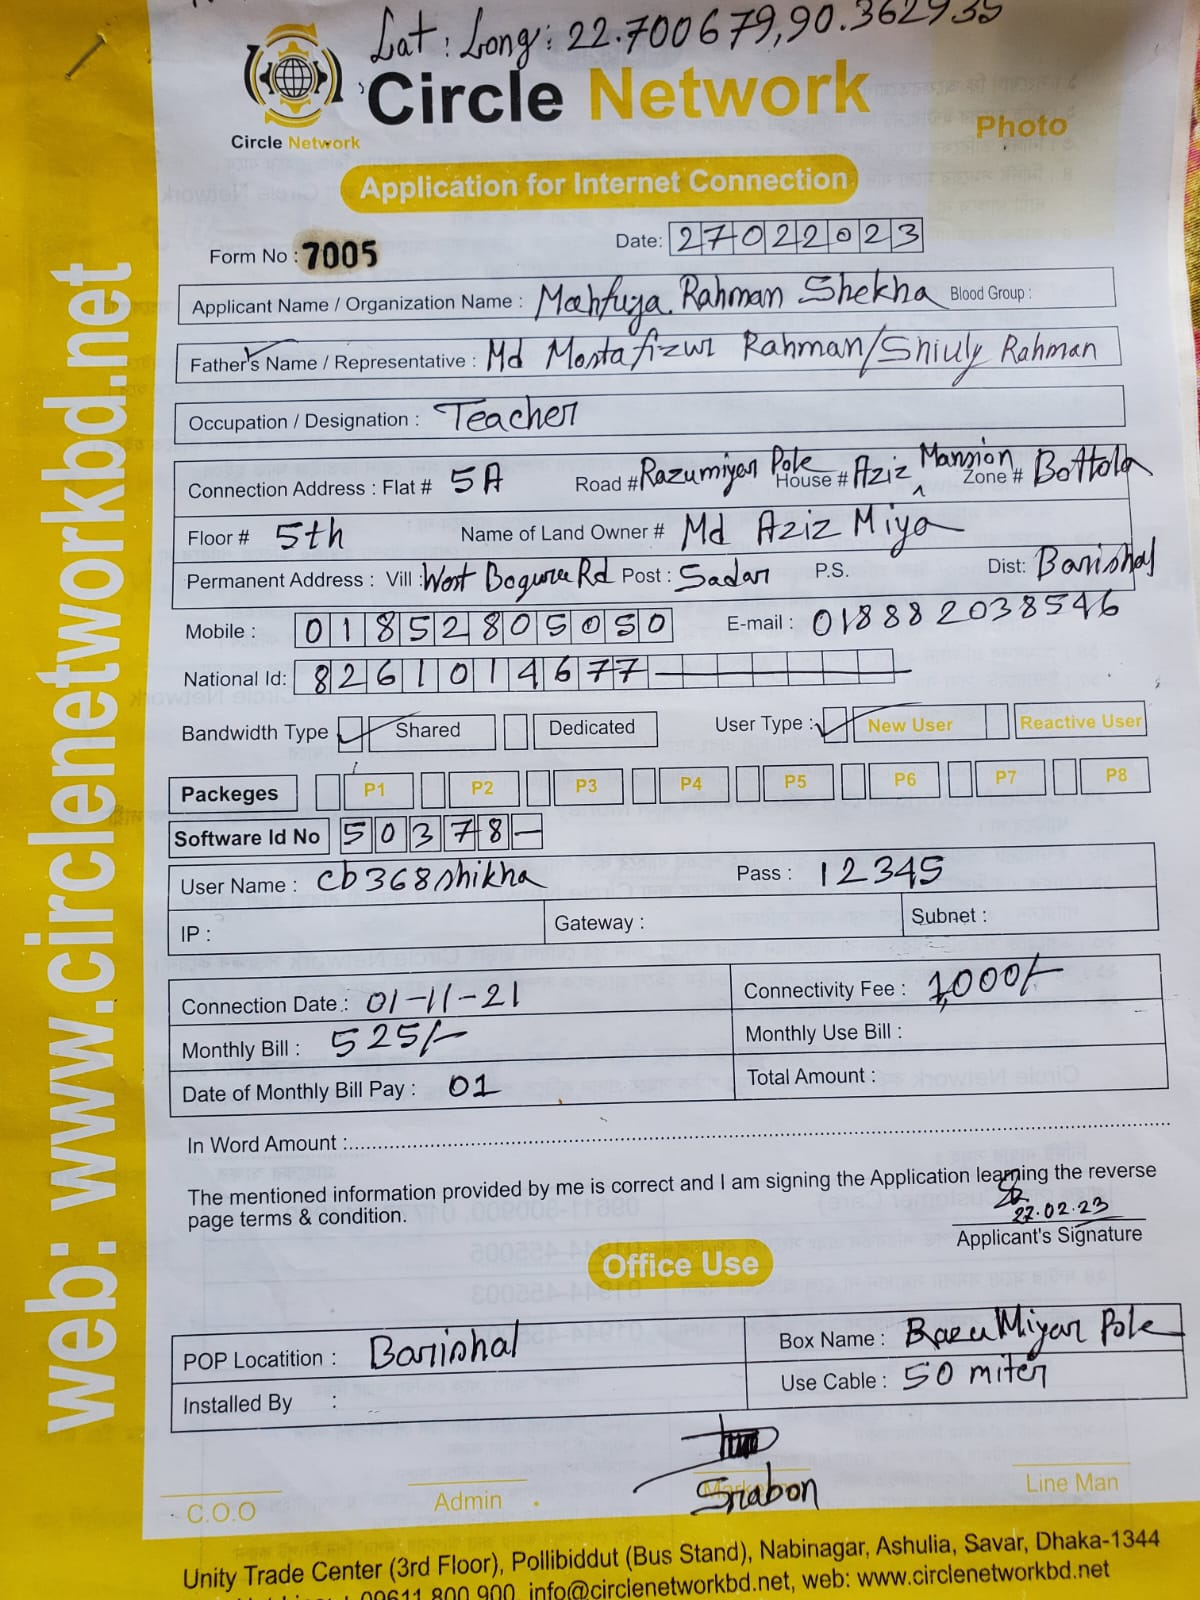 Lat: Long: 22.700679,90.362935
Circle Network
Circle Network
Photo
Application for Internet Connection
Form No : 7005
Date: 27022023
Applicant Name / Organization Name : Mahfuya. Rahman Shekha Blood Group :
Father's Name / Representative : Md Mostafizur Rahman/Shiuly Rahman
Occupation / Designation : Teacher
Connection Address : Flat # 5A Road # Razumiyar Pole House # Aziz Mansion Zone # Bottola
Floor # 5th Name of Land Owner # Md Aziz Miya
Permanent Address : Vill : West Bogura Rd Post : Sadar P.S. Dist: Barishal
Mobile : 01852805050 E-mail : 018882038546
National Id: 8261014677
Bandwidth Type Shared Dedicated User Type : New User Reactive User
Packeges P1 P2 P3 P4 P5 P6 P7 P8
Software Id No 50378-
User Name : cb368shikha Pass : 12345
IP : Gateway : Subnet :
Connection Date : 01-11-21 Connectivity Fee : 1,000/-
Monthly Bill : 525/- Monthly Use Bill :
Date of Monthly Bill Pay : 01 Total Amount :
In Word Amount :
The mentioned information provided by me is correct and I am signing the Application learning the reverse
page terms & condition.
27.02.23
Applicant's Signature
Office Use
POP Locatition : Barishal Box Name : Razu Miyar Pole
Installed By : Use Cable : 50 miter
Srabon
C.O.O Admin Line Man
Unity Trade Center (3rd Floor), Pollibiddut (Bus Stand), Nabinagar, Ashulia, Savar, Dhaka-1344
09611 800 900, info@circlenetworkbd.net, web: www.circlenetworkbd.net
web: www.circlenetworkbd.net